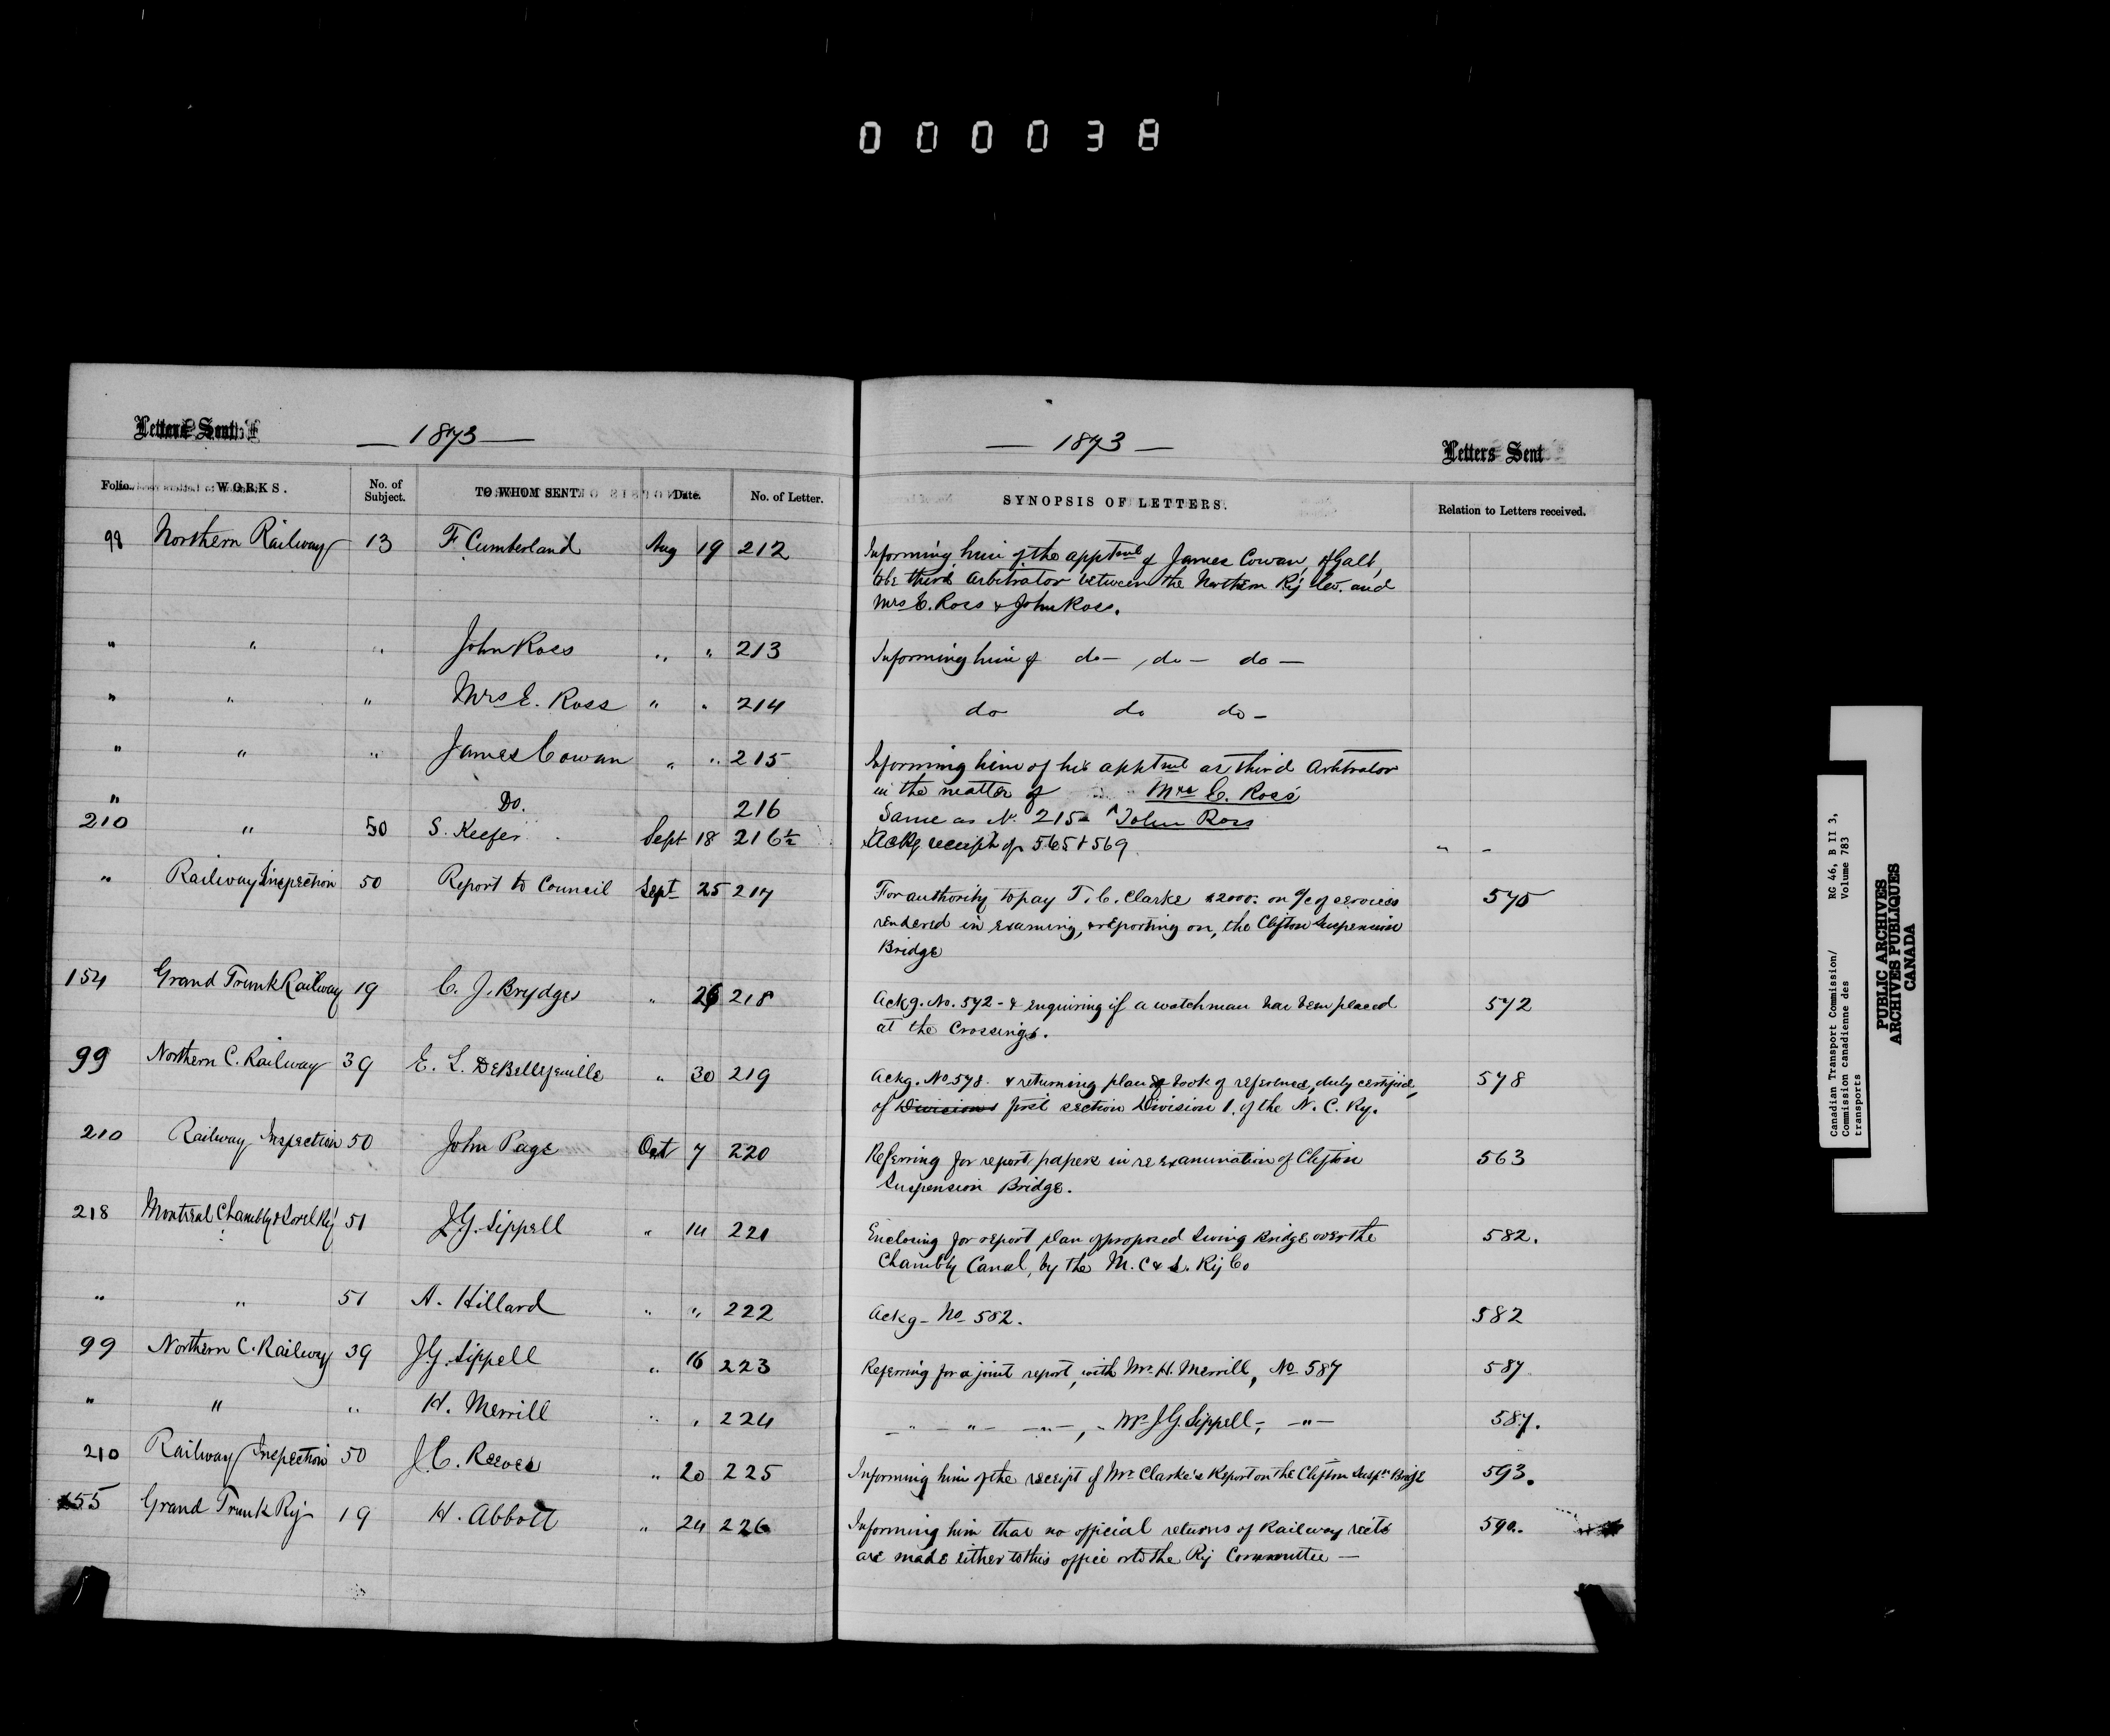 000038
Letters Sent
— 1873 —
Folio. WORKS. No. of Subject. TO WHOM SENT. Date. No. of Letter.
98 Northern Railway 13 F Cumberland Aug 19 212
" " " John Ross " " 213
" " " Mrs E. Ross " " 214
" " " James Cowan " " 215
" Do. 216
210 " 50 S. Keefer Sept 18 216½
" Railway Inspection 50 Report to Council Sept 25 217
154 Grand Trunk Railway 19 C. J. Brydges " 26 218
99 Northern C. Railway 39 E. L. DeBellefeuille " 30 219
210 Railway Inspection 50 John Page Oct 7 220
218 Montreal Chambly & Sorel Ry 51 J.G. Sippell " 14 221
" " 51 A. Hillard " " 222
99 Northern C. Railway 39 J.G. Sippell " 16 223
" " " H. Merrill " " 224
210 Railway Inspection 50 J.C. Reeves " 20 225
155 Grand Trunk Ry 19 H. Abbott " 24 226
— 1873 —
Letters Sent
SYNOPSIS OF LETTERS. Relation to Letters received.
Informing him of the apptmt of James Cowan, of Galt,
to be third Arbitrator between the Northern Ry Co. and
Mrs E. Ross & John Ross.
Informing him of do — , do — do —
do do do —
Informing him of his apptmt as third Arbitrator
in the matter of Mrs E. Ross
Same as No. 215 John Ross
Ackg receipt of 565 & 569 " -
For authority to pay T. C. Clarke $2000: on a/c of services 575
rendered in examing, & reporting on, the Clifton Suspension
Bridge
Ackg. No. 572 - & enquiring if a watchman has been placed 572
at the Crossings.
Ackg. No 578. & returning plan & book of reference, duly certified, 578
of Divisions first section Division 1. of the N. C. Ry.
Referring for report papers in re examination of Clifton 563
Suspension Bridge.
Enclosing for report plan of proposed Swing Bridge over the 582.
Chambly Canal, by the M. C & S. Ry Co
Ackg - No 582. 582
Referring for a joint report, with Mr. H. Merrill, No 587 587
— " — " — " —, " Mr J.G. Sippell, — " — 587.
Informing him of the receipt of Mr. Clarke's Report on the Clifton Suspn Bridge 593.
Informing him that no official returns of Railway rects 590.
are made either to this office or to the Ry Committee —
Canadian Transport Commission/ RG 46, B II 3,
Commission canadienne des Volume 783
transports
PUBLIC ARCHIVES
ARCHIVES PUBLIQUES
CANADA